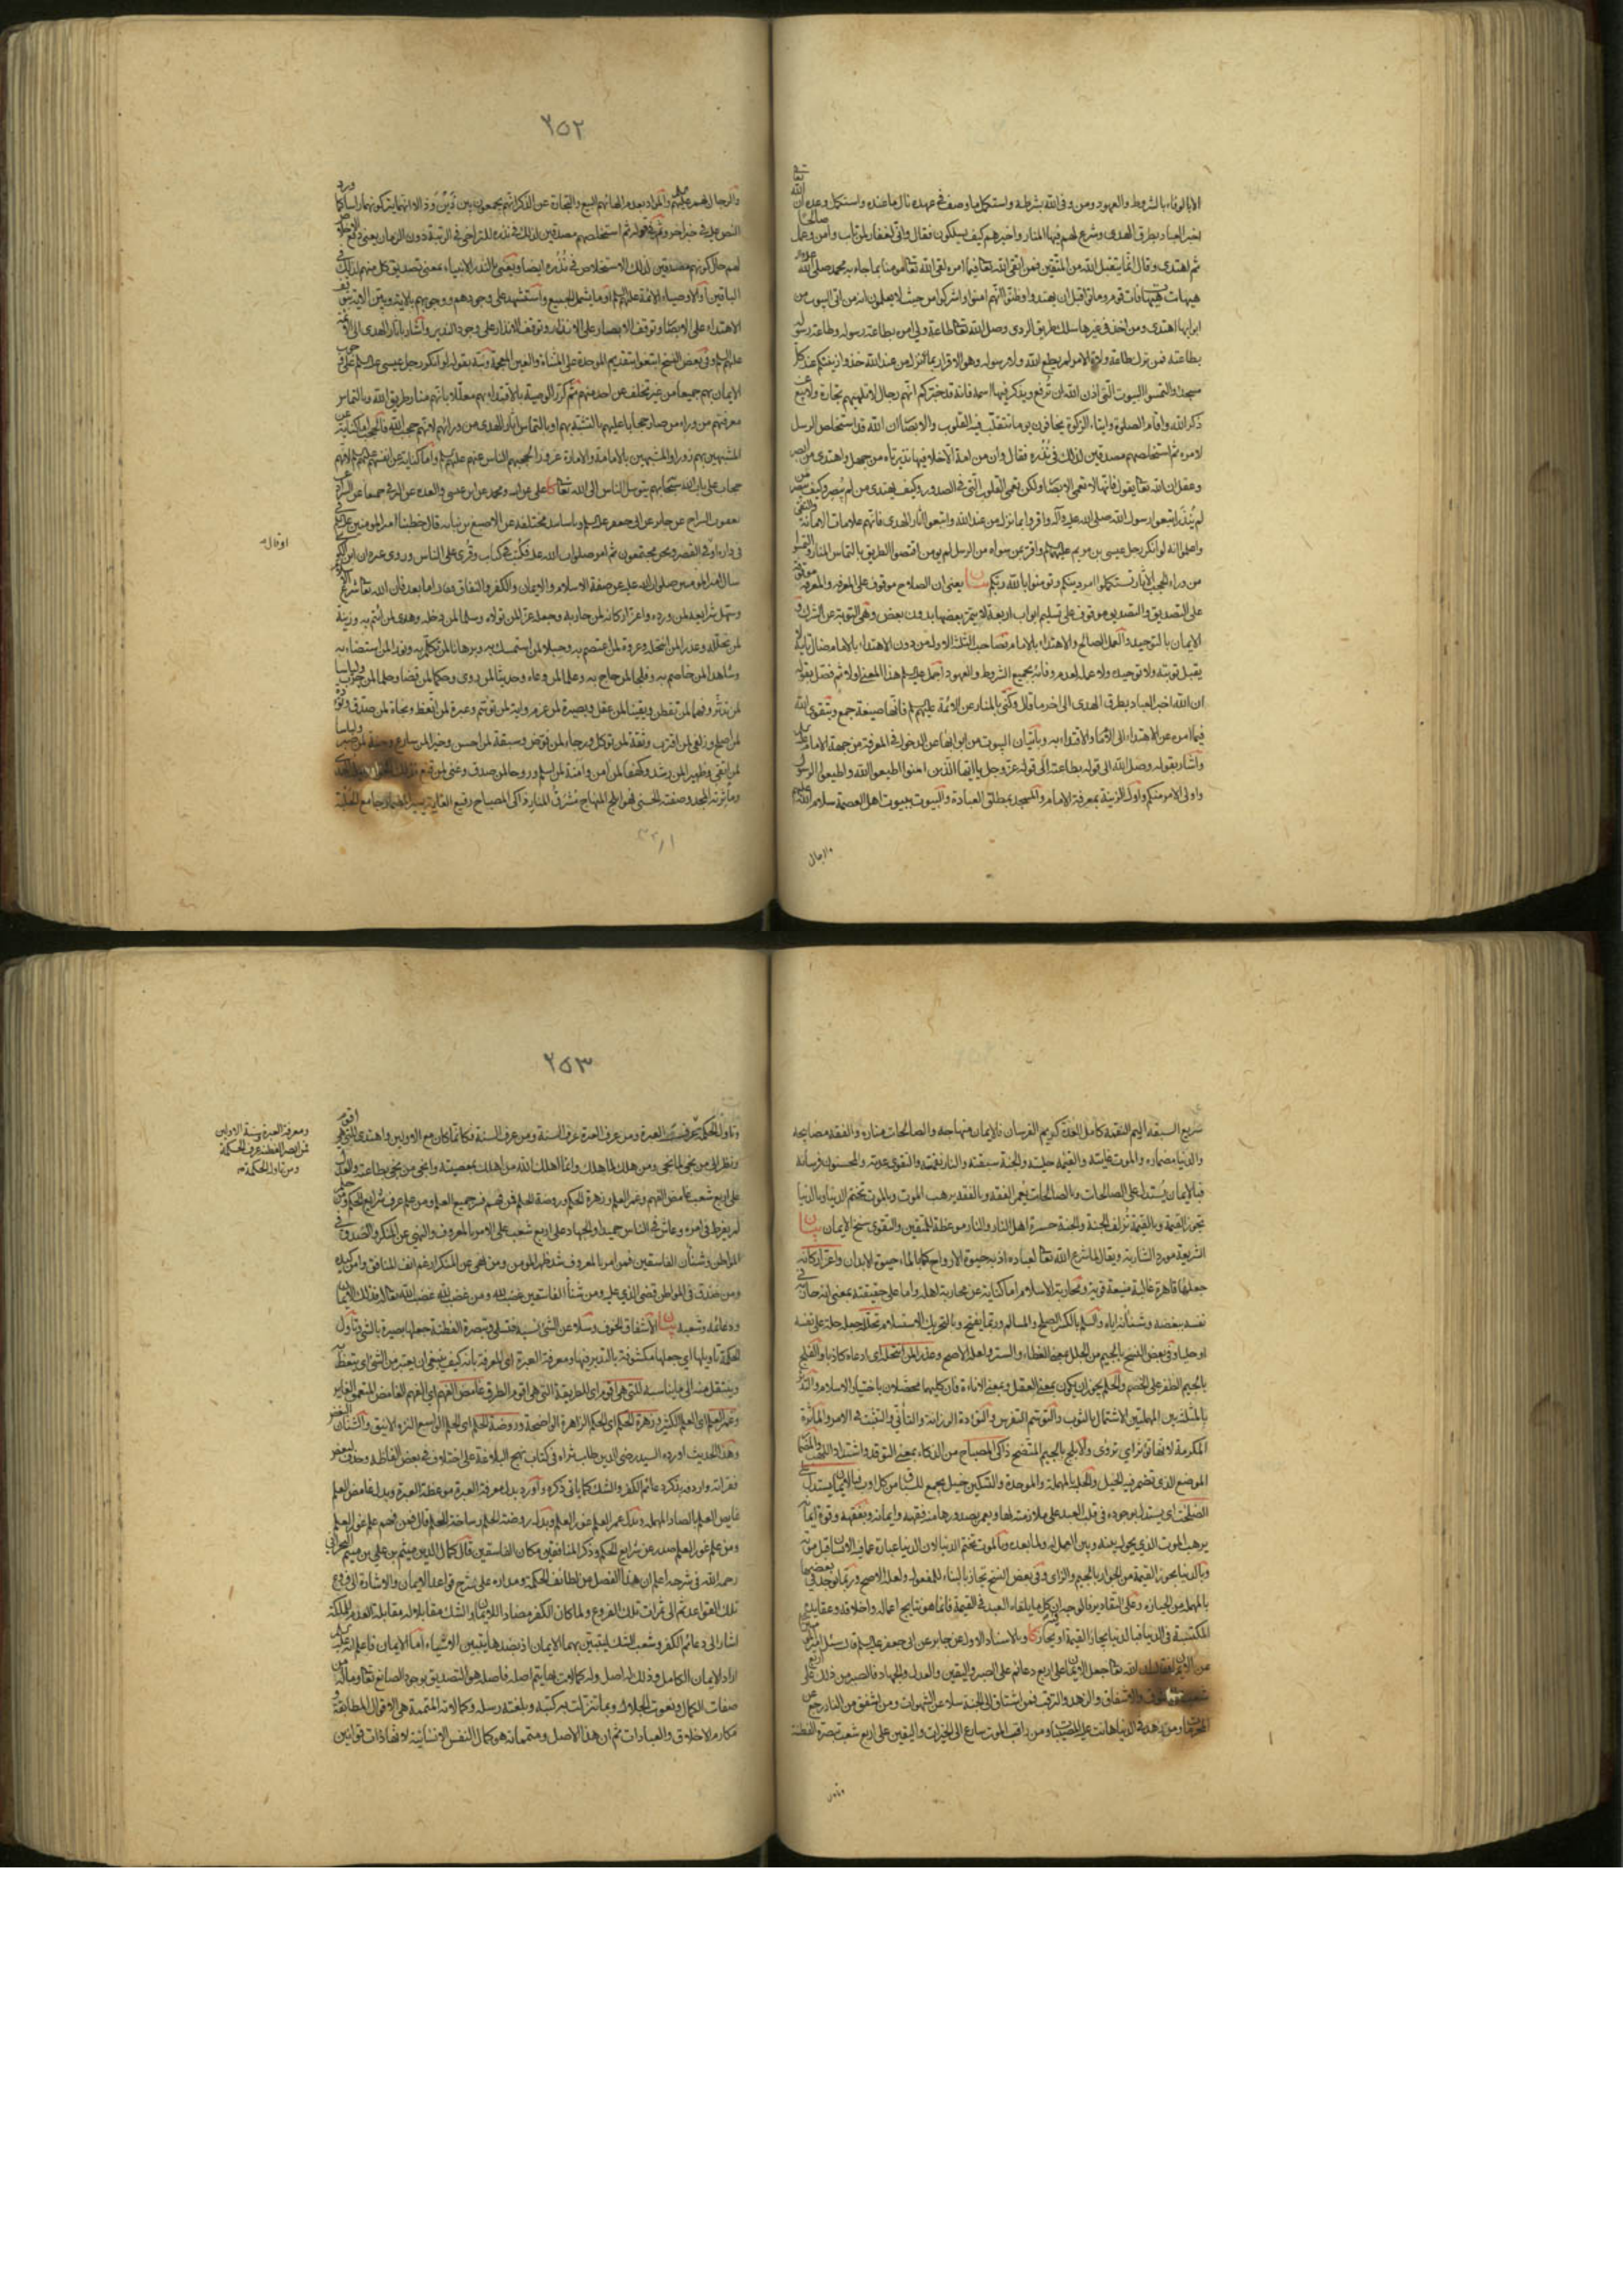 الا بالوفاء بالشروط والعهود ومن وفى الله بشرطه واستكمل ما وصف في عهده نال ما عنده واستكمل وعده ان الله تعالى
اخبر العباد بطرق الهدى وشرع لهم فيها المنار واخبرهم كيف يسلكون فقال واني لغفار لمن تاب وآمن وعمل صالحا
ثم اهتدى وقال انما يتقبل الله من المتقين فمن اتقى الله تعالى فيما امره لقى الله تعالى مؤمنا بما جاء به محمد صلى الله عليه وآله
هيهات هيهات فات قوم وماتوا قبل ان يهتدوا وظنوا انهم امنوا واشركوا من حيث لا يعلمون انه من اتى البيوت من
ابوابها اهتدى ومن اخذ في غيرها سلك طريق الردى وصل الله تعالى طاعة ولي امره بطاعة رسوله وطاعة رسوله
بطاعته فمن ترك طاعة ولاة الامر لم يطع الله ولا رسوله وهو الاقرار بما انزل من عند الله خذوا زينتكم عند كل
مسجد والتمسوا البيوت التي اذن الله ان ترفع ويذكر فيها اسمه فانه قد خبركم انهم رجال لا تلهيهم تجارة ولا بيع عن
ذكر الله واقام الصلوة وايتاء الزكوة يخافون يوما تتقلب فيه القلوب والابصار ان الله قد استخلص الرسل
لامره ثم استخلصهم مصدقين لذلك في نذره فقال وان من امة الا خلا فيها نذير تاه من جهل واهتدى من ابصر
وعقل ان الله تعالى يقول فانها لا تعمى الابصار ولكن تعمى القلوب التي في الصدور وكيف يهتدى من لم يبصر وكيف يبصر من
لم ينذر اتبعوا رسول الله صلى الله عليه وآله واقروا بما نزل من عند الله واتبعوا آثار الهدى فانهم علامات الامانة والتقى
واعلموا انه لو انكر رجل عيسى بن مريم عليهما السلم واقر بمن سواه من الرسل لم يؤمن اقتصوا الطريق بالتماس المنار والتمسوا
من وراء الحجب الآثار تستكملوا امر دينكم وتؤمنوا بالله ربكم بيان يعنى ان الصلاح موقوف على المعرفة والمعرفة موقوفة
على التصديق والتصديق موقوف على تسليم ابواب اربعة لا يتم بعضها بدون بعض وهي التوبة عن الشرك و
الايمان بالتوحيد والعمل الصالح والاهتداء بالامام فصاحب الثلثة الاولة من دون الاهتداء بالامام ضال تايه لم
يقبل توبته ولا توحيده ولا عمله لعدم وفائه بجميع الشروط والعهود اجمل عليه السلم هذا المعنى اولا ثم فصل بقوله
ان الله اخبر العباد بطرق الهدى الى آخر ما قال وكنى بالمنار عن الائمة عليهم السلم فانها صيغة جمع وبتقوى الله
فيما امره عن الاهتداء الى الامام والاقتداء به وباتيان البيوت من ابوابها عن الدخول في المعرفة من جهة الامام عليه السلم
واشار بقوله وصل الله الى قوله بطاعته الى قوله عز وجل يا ايها الذين امنوا اطيعوا الله واطيعوا الرسول
واولى الامر منكم واول الزينة بمعرفة الامام والمسجد بمطلق العبادة والبيوت ببيوت اهل العصمة سلام الله عليهم
والرجال
٢٥٢
والرجال بهم عليهم السلم والمراد بعدم الهائهم البيع والتجارة عن الذكر انهم يجمعون بين ذين وذا لا انهما يتركونهما راسا كما ورد
النص عليه في خبر آخر وثم في قوله ثم استخلصهم مصدقين لذلك في نذره للتراخي في الرتبة دون الزمان يعنى وقع الاستخلاص
لهم حال كونهم مصدقين لذلك الاستخلاص في نذره ايضا ويعنى النذر الانبياء بمعنى تصديق كل منهم لذلك في
الباقين او الاوصياء الائمة عليهم السلم او ما يشمل الجميع واستشهد على وجودهم ووجوبهم بالآية وبين الآية بتوقف
الاهتداء على الابصار وتوقف الابصار على الانذار وتوقف الانذار على وجود النذير واشار باثار الهدى الى الائمة
عليهم السلم وفي بعض النسخ ابتغوا بتقديم الموحدة على المثناة والغين المعجمة ونبه بقوله لو انكر رجل عيسى عليه السلم على وجوب
الايمان بهم جميعا من غير تخلف عن احد منهم ثم كرر الوصية بالاقتداء بهم معللا بانهم منار طريق الله وبالتماس
معرفتهم من وراء من صار حجابا عليهم بالتشبه بهم او بالتماس آثار الهدى من ورائهم لانهم حجب الله فالحجب اما كناية عن
المشبهين بهم زورا والمشبهين بالامامة والامارة غرورا لحجبهم الناس عنهم عليهم السلم واما كناية عن انفسهم عليهم السلم لانهم
حجاب على باب الله سبحانه بهم يتوسل الناس الى الله تعالى كا علي عن ابيه ومحمد عن ابن عيسى والعدة عن البرقي جميعا عن السراد
يعقوب السراج عن جابر عن ابي جعفر عليه السلم وباسانيد مختلفة عن الاصبغ بن نباتة قال خطبنا امير المؤمنين عليه السلم
في داره او في القصر ونحن مجتمعون ثم امر صلوات الله عليه فكتب في كتاب وقرئ على الناس وروى غيره ان ابن الكواء
سال امير المؤمنين صلوات الله عليه عن صفة الاسلام والايمان والكفر والنفاق فقال اما بعد فان الله تعالى شرع الاسلام
وسهل شرايعه لمن ورده واعز اركانه لمن حاربه وجعله عزا لمن تولاه وسلما لمن دخله وهدى لمن ائتم به وزينة
لمن تجلله وعذرا لمن انتحله وعروة لمن اعتصم به وحبلا لمن استمسك به وبرهانا لمن تكلم به ونورا لمن استضاء به
وشاهدا لمن خاصم به وفلجا لمن حاج به وعلما لمن وعاه وحديثا لمن روى وحكما لمن قضا وحلما لمن جرب ولباسا
لمن تدثر وفهما لمن تفطن ويقينا لمن عقل وبصيرة لمن عزم وآية لمن توسم وعبرة لمن اتعظ ونجاة لمن صدق وتؤدة
لمن اصلح وزلفى لمن اقترب وثقة لمن توكل ورجاء لمن فوض وسبقة لمن احسن وخيرا لمن سارع وجنة لمن صبر ولباسا
لمن اتقى وظهيرا لمن رشد وكهفا لمن آمن وامنة لمن اسلم وروحا لمن صدق وغنى لمن قنع
وماثرته المجد وصفته الحسنى فهو ابلج المنهاج مشرق المنار ذاكى المصباح رفيع الغاية يسير المضمار جامع الحلبة
او قال
٢٥٣
سريع السبقة اليم النقمة كامل العدة كريم الفرسان فالايمان منهاجه والصالحات مناره والفقه مصابيحه
والدنيا مضماره والموت غايته والقيمة حلبته والجنة سبقته والنار نقمته والتقوى عدته والمحسنون فرسانه
فبالايمان يستدل على الصالحات وبالصالحات يعمر الفقه وبالفقه يرهب الموت وبالموت تختم الدنيا وبالدنيا
تجوز القيمة وبالقيمة تزلف الجنة والجنة حسرة اهل النار والنار موعظة المتقين والتقوى سنخ الايمان بيان
الشريعة مورد الشاربة ويقال لما شرع الله تعالى لعباده اذ به حيوة الارواح كما بالماء حيوة الابدان واعز اركانه
جعلها قاهرة غالبة منيعة قوية ومحاربة الاسلام اما كناية عن محاربة اهله واما على حقيقته بمعنى انه حارب في
نفسه ببغضه وشنآنه اياه والسلم بالكسر الصلح والمسالم وربما يفتح وبالتحريك الاستسلام تجلله جعله حلة على نفسه
او حليا وفي بعض النسخ بالجيم من الجلل بمعنى الغطاء والستر ولعله الاصح وعذرا لمن انتحله اى ادعاه كاذبا والفلج
بالجيم الظفر على الخصم والحلم يجوز ان يكون بمعنى العقل وبمعنى الاناءة فان كليهما يحصلان باختيار الاسلام والتدثر
بالمثلثة بين المهملتين الاشتمال بالثوب والتوسم التفرس والتؤدة الرزانة والتأني والتثبت في الامر والمأثرة
المكرمة لانها تؤثر اي تروى والابلج بالجيم المتضح ذاكى المصباح من الذكاء بمعنى التوقد واشتداد اللهب والمضمار
الموضع الذي تضمر فيه الخيل والحلبة بالمهملة والموحدة والتسكين خيل يجمع للسباق من كل اوب فبالايمان يستدل على
الصالحات اى يستدل بوجوده في قلب العبد على ملازمته لها وبعمر بصدورها منه فقهه وايمانه وبفقهه وقوة ايمانه
يرهب الموت الذي يحول بينه وبين العمل له ولما بعده وبالموت تختم الدنيا لان الدنيا عبارة عما فيه الانسان قبل موته
وبالدنيا يجوز القيمة من الجواز بالجيم والزاى وفي بعض النسخ تجاز بالبناء للمفعول ولعله الاصح وربما يوجد في بعضها
بالمهملة من الحيازة وعلى التقادير فالوجه ان كل ما يلقاه العبد في القيمة فانما هو نتايج اعماله واخلاقه وعقايده
المكتسبة في الدنيا فبالدنيا يجاز القيمة او يحاز كا وبالاسناد الاول عن جابر عن ابي جعفر عليه السلم قال سئل امير المؤمنين
عن الايمان فقال ان الله تعالى جعل الايمان على اربع دعائم على الصبر واليقين والعدل والجهاد فالصبر من ذلك على اربع
شعب على الشوق والاشفاق والزهد والترقب فمن اشتاق الى الجنة سلا عن الشهوات ومن اشفق من النار رجع عن
المحرمات ومن زهد في الدنيا هانت عليه المصيبات ومن راقب الموت سارع الى الخيرات واليقين على اربع شعب تبصرة الفطنة
وتاول
العبرة ومن عرف العبرة عرف السنة ومن عرف السنة فكانما كان مع الاولين واهتدى للتي هي اقوم
ونظر الى من نجى بما نجى ومن هلك بما هلك وانما اهلك الله من اهلك بمعصيته وانجى من نجى بطاعته والعدل
على اربع شعب غامض الفهم وغمر العلم وزهرة الحكم وروضة الحلم فمن فهم فسر جميع العلم ومن علم عرف شرايع الحكم ومن حلم
لم يفرط في امره وعاش في الناس حميدا والجهاد على اربع شعب على الامر بالمعروف والنهي عن المنكر والصدق في
المواطن وشنآن الفاسقين فمن امر بالمعروف شد ظهر المؤمن ومن نهى عن المنكر ارغم انف المنافق وامن كيده
ومن صدق في المواطن قضى الذي عليه ومن شنأ الفاسقين غضب لله ومن غضب لله غضب الله تعالى له فذلك الايمان
ودعائمه وشعبه بيان الاشفاق الخوف وسلا عن الشئ نسيه فتسلى وتبصرة الفطنة جعلها بصيرة بالشئ وتأول
الحكمة تاويلها اي جعلها مكشوفة بالتدبر فيها ومعرفة العبرة اى المعرفة بانه كيف ينبغي ان يعتبر من الشئ اى يتعظ به
وينتقل منه الى ما يناسبه للتي هي اقوم اى للطريقة التي هي اقوم الطرق غامض الفهم اي الفهم الغامض المتعمق الغاير
وغمر العلم اى العلم الكثير وزهرة الحكم اى الحكم الزاهرة الواضحة وروضة الحلم اى الحلم الواسع النزه الانيق والشنآن البغض
وهذا الحديث اورده السيد رضي الدين طاب ثراه في كتاب نهج البلاغة على اختلاف في بعض الفاظه وحذف لبعض
فقراته واردفه بذكر دعائم الكفر والشك كما ياتى ذكره واورد بدل معرفة العبرة موعظة العبرة وبدل غامض العلم
غايص العلم بالصاد المهملة وبدل غمر العلم غور العلم وبدل روضة الحلم رساخة الحلم قال فمن فهم علم غور العلم
ومن علم غور العلم صدر عن شرايع الحكم وذكر المنافقين مكان الفاسقين قال كمال الدين ميثم بن علي بن ميثم البحراني
رحمه الله في شرحه اعلم ان هذا الفصل من لطائف الحكمة ومداره على شرح قواعد الايمان والاشارة الى فروع
تلك القواعد ثم الى ثمرات تلك الفروع ولما كان الكفر مضادا للايمان والشك مقابلا له مقابلة العدم للملكة
اشار الى دعائم الكفر وشعب الشك ليتبين بهما الايمان اذ بضدها يتبين الاشياء اما الايمان فاعلم انه عليه السلم
اراد الايمان الكامل وذلك له اصل وله كمالات بها يتم اصله فاصله هو التصديق بوجود الصانع تعالى وماله من
صفات الكمال ونعوت الجلال وبما نزلت به كتبه وبلغته رسله وكمالاته المتممة هي الاقوال المطابقة و
مكارم الاخلاق والعبادات ثم ان هذا الاصل ومتمماته هو كمال النفس الانسانية لانها ذات قوتين
ومعرفة العبرة وسنة الاولين
فمن ابصر الفطنة عرف الحكمة
ومن تاول الحكمة